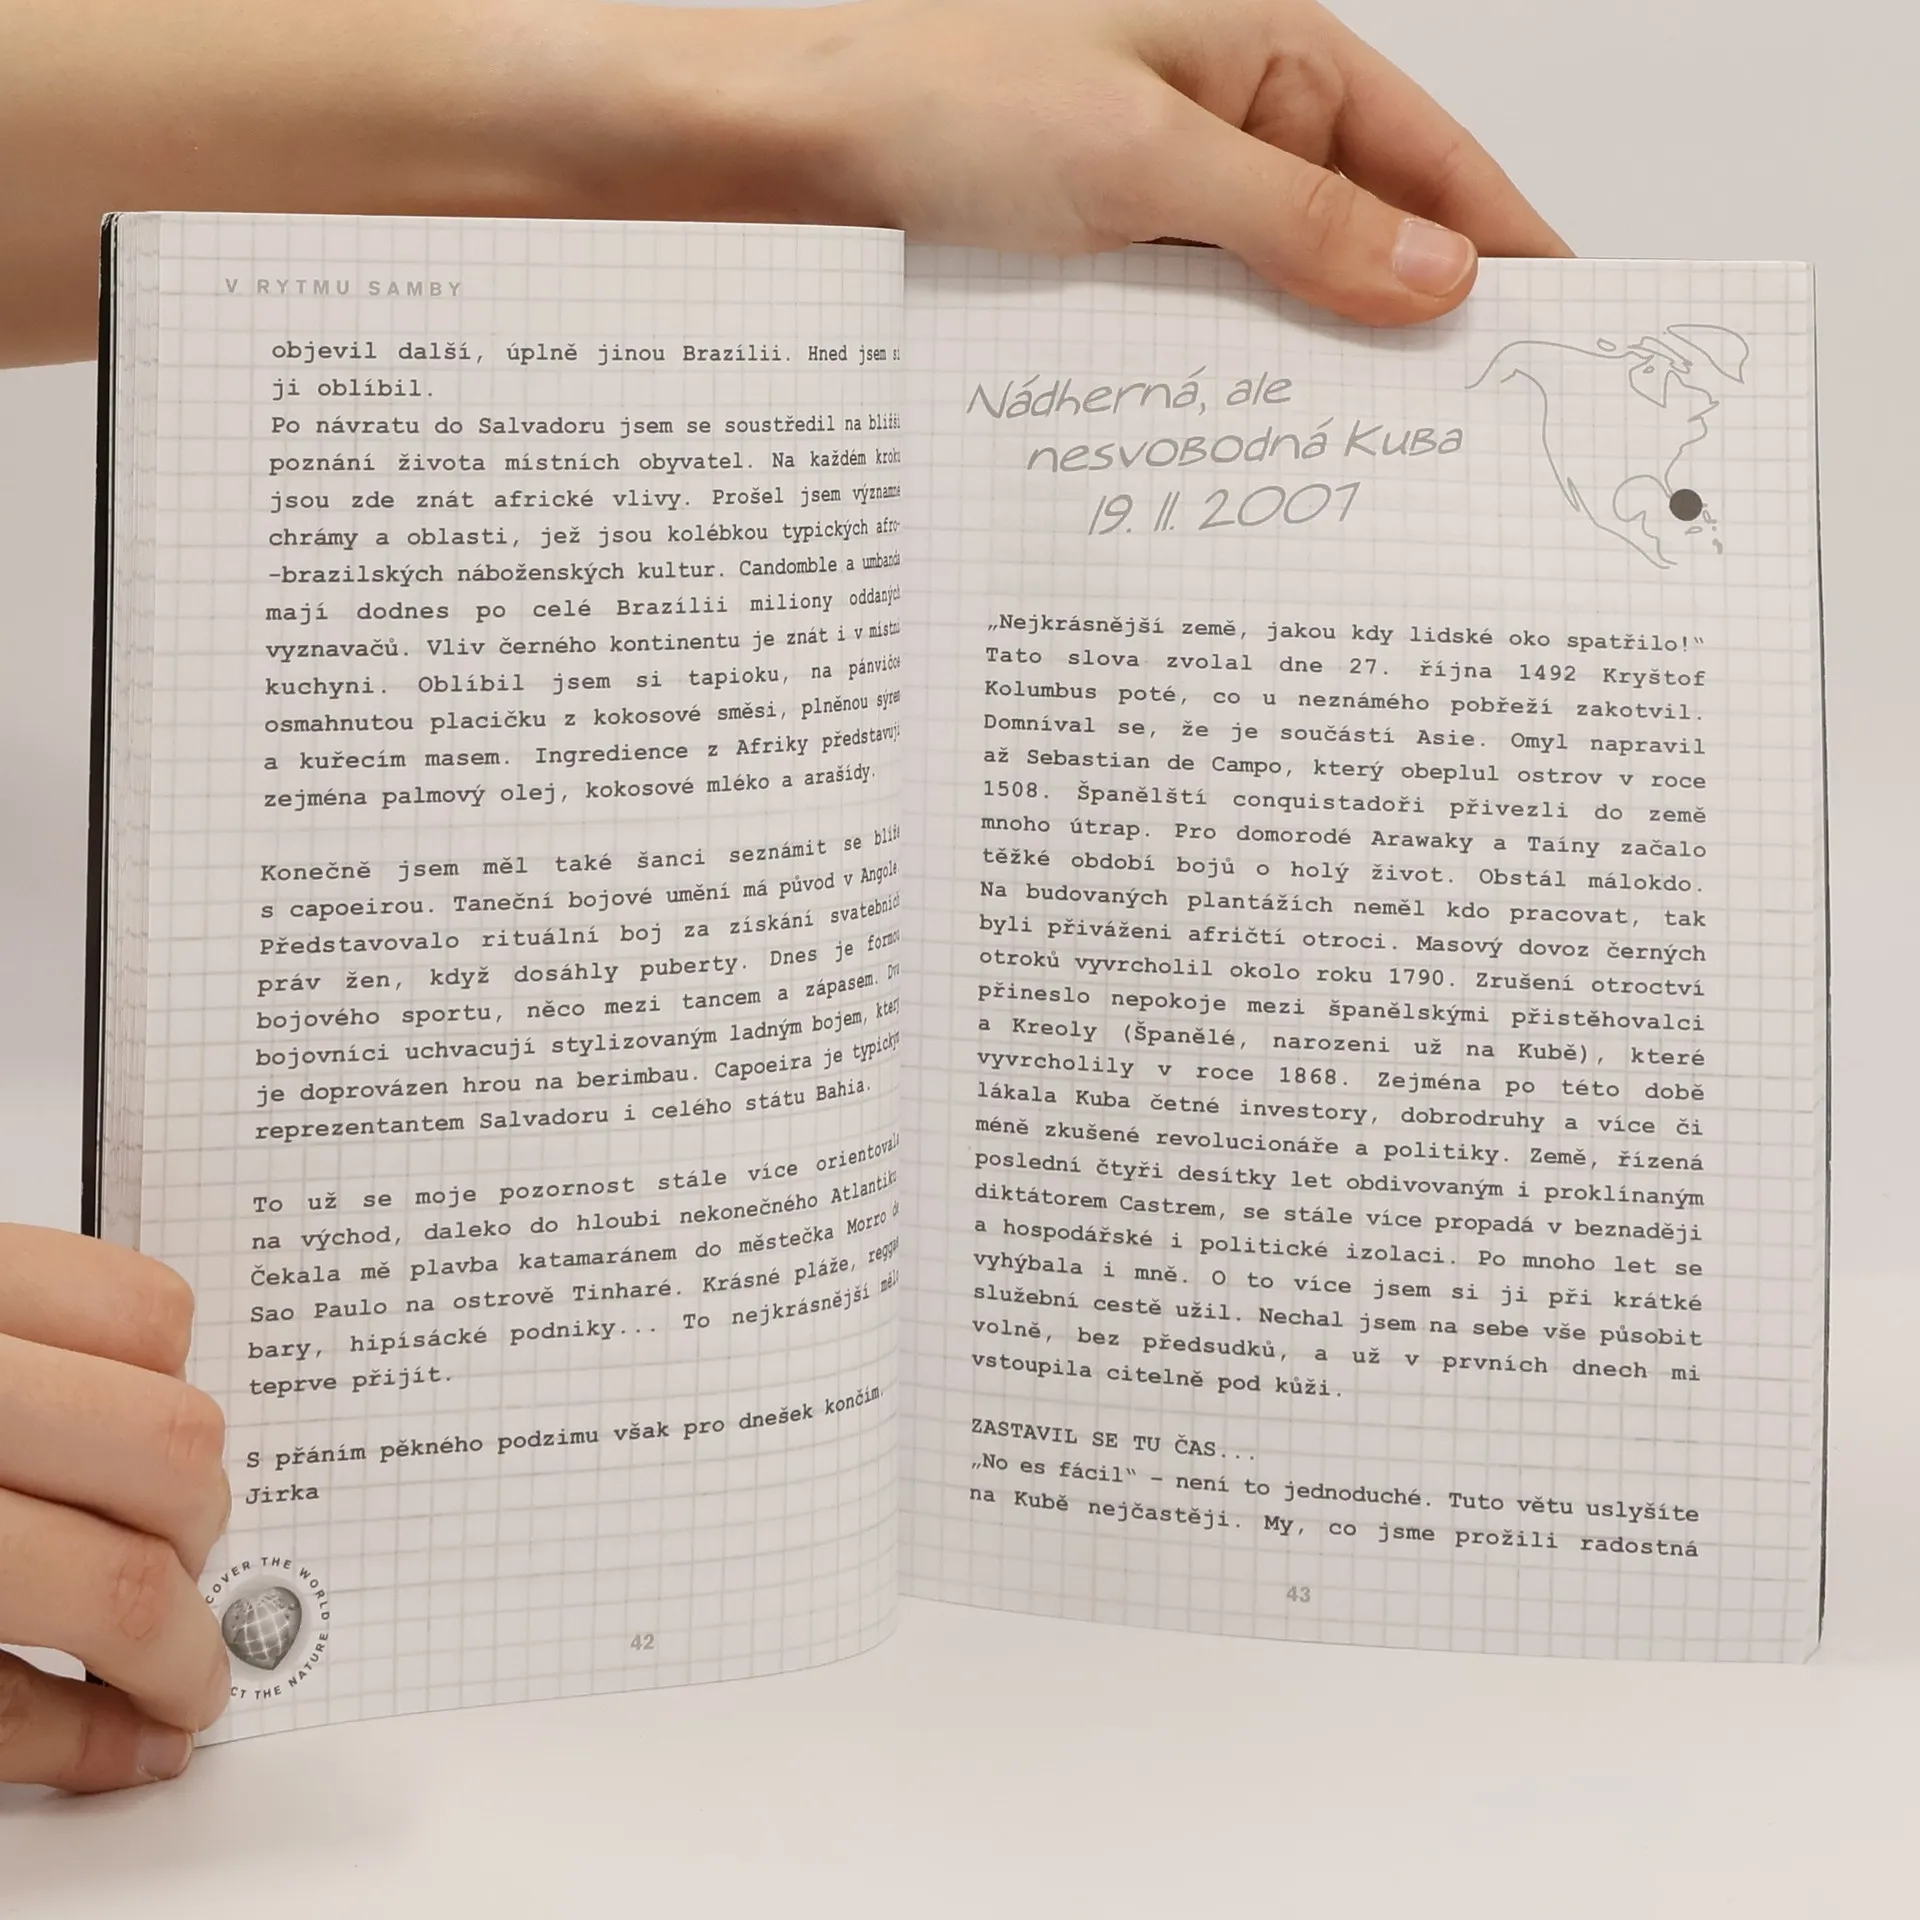 V RYTMU SAMBY
objevil další, úplně jinou Brazílii. Hned jsem si
ji oblíbil.
Po návratu do Salvadoru jsem se soustředil na bližší
poznání života místních obyvatel. Na každém kroku
jsou zde znát africké vlivy. Prošel jsem významné
chrámy a oblasti, jež jsou kolébkou typických afro-
-brazilských náboženských kultur. Candomble a umbanda
mají dodnes po celé Brazílii miliony oddaných
vyznavačů. Vliv černého kontinentu je znát i v místní
kuchyni. Oblíbil jsem si tapioku, na pánvičce
osmahnutou placičku z kokosové směsi, plněnou sýrem
a kuřecím masem. Ingredience z Afriky představují
zejména palmový olej, kokosové mléko a arašídy.
Konečně jsem měl také šanci seznámit se blíže
s capoeirou. Taneční bojové umění má původ v Angole.
Představovalo rituální boj za získání svatebních
práv žen, když dosáhly puberty. Dnes je formou
bojového sportu, něco mezi tancem a zápasem. Dva
bojovníci uchvacují stylizovaným ladným bojem, který
je doprovázen hrou na berimbau. Capoeira je typickým
reprezentantem Salvadoru i celého státu Bahia.
To už se moje pozornost stále více orientovala
na východ, daleko do hloubi nekonečného Atlantiku.
Čekala mě plavba katamaránem do městečka Morro de
Sao Paulo na ostrově Tinharé. Krásné pláže, reggae
bary, hipísácké podniky... To nejkrásnější mělo
teprve přijít.
S přáním pěkného podzimu však pro dnešek končím.
Jirka
COVER THE WORLD
CT THE NATURE
42
Nádherná, ale
nesvobodná Kuba
19. 11. 2007
„Nejkrásnější země, jakou kdy lidské oko spatřilo!“
Tato slova zvolal dne 27. října 1492 Kryštof
Kolumbus poté, co u neznámého pobřeží zakotvil.
Domníval se, že je součástí Asie. Omyl napravil
až Sebastian de Campo, který obeplul ostrov v roce
1508. Španělští conquistadoři přivezli do země
mnoho útrap. Pro domorodé Arawaky a Taíny začalo
těžké období bojů o holý život. Obstál málokdo.
Na budovaných plantážích neměl kdo pracovat, tak
byli přiváženi afričtí otroci. Masový dovoz černých
otroků vyvrcholil okolo roku 1790. Zrušení otroctví
přineslo nepokoje mezi španělskými přistěhovalci
a Kreoly (Španělé, narozeni už na Kubě), které
vyvrcholily v roce 1868. Zejména po této době
lákala Kuba četné investory, dobrodruhy a více či
méně zkušené revolucionáře a politiky. Země, řízená
poslední čtyři desítky let obdivovaným i proklínaným
diktátorem Castrem, se stále více propadá v beznaději
a hospodářské i politické izolaci. Po mnoho let se
vyhýbala i mně. O to více jsem si ji při krátké
služební cestě užil. Nechal jsem na sebe vše působit
volně, bez předsudků, a už v prvních dnech mi
vstoupila citelně pod kůži.
ZASTAVIL SE TU ČAS...
„No es fácil“ – není to jednoduché. Tuto větu uslyšíte
na Kubě nejčastěji. My, co jsme prožili radostná
43